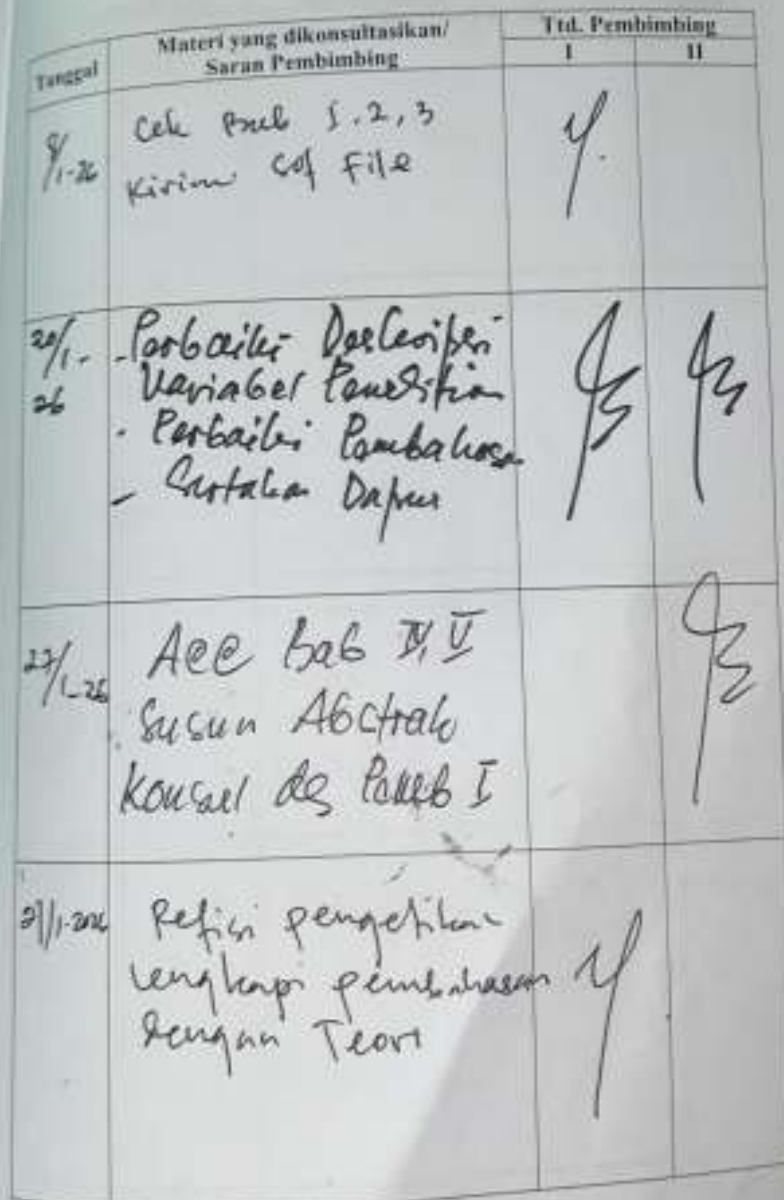 Tanggal
Materi yang dikonsultasikan/
Saran Pembimbing
Ttd. Pembimbing
I II
8/1-26
Cek Bab 1.2,3
Kirim sof File
20/1-26
- Perbaiki Deskripsi
Variabel Penelitian
- Perbaiki Pembahasan
- Sertakan Dapus
/1-26
Acc Bab IV, V
Susun Abstrak
Konsul dg Pemb I
/1-2026
Refisi pengetikan
lengkapi pembahasan
dengan Teori